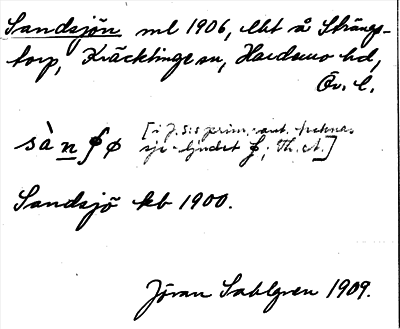 Sandsjön ml 1906, lht å Strängs-
torp, Kväcklinge sn, Hardsmo hd,
Öv. l.
sàn ʄ ø [i J. S:s prim.-ant. tecknas
sje-ljudet ʄ; Th. A.]
Sandsjö kb 1900.
Jöran Sahlgren 1909.